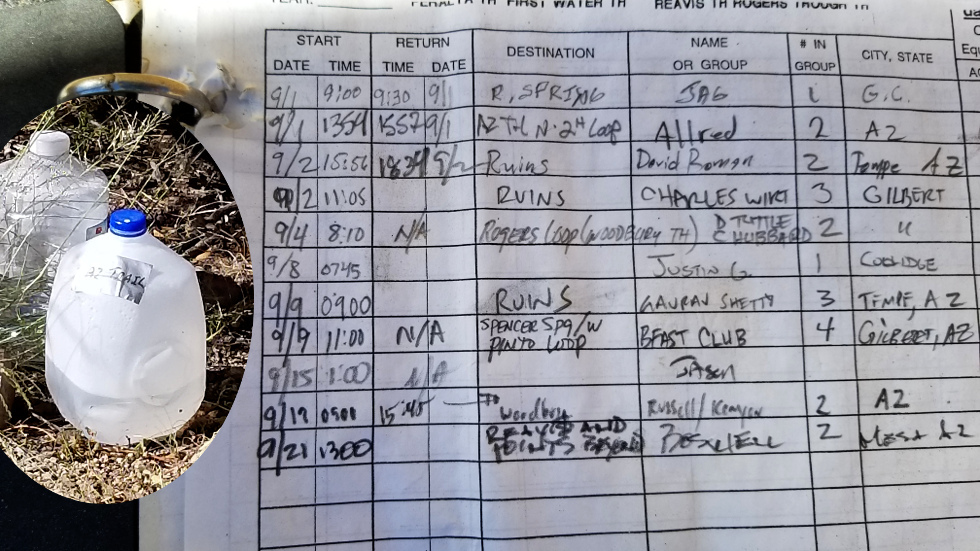 PERALTA TH FIRST WATER TH REAVIS TH ROGERS TROUGH TH
START RETURN DESTINATION NAME OR GROUP # IN GROUP CITY, STATE
DATE TIME TIME DATE
9/1 9:00 9:30 9/1 R. SPRING JAG 1 G.C.
9/1 1354 1552 9/1 AZ TH N. 2H Loop Allred 2 AZ
9/2 1834 9/2 Ruins David Roman 2 Tempe AZ
9/2 11:05 RUINS CHARLES WIRT 3 GILBERT
9/4 8:10 N/A ROGERS LOOP (WOODBURY TH) D TUTTLE C HUBBARD 2 "
9/8 0745 JUSTIN G. 1 COOLIDGE
9/9 0900 RUINS GAURAV SHETTY 3 TEMPE, AZ
9/9 11:00 N/A SPENCER SPG/W PINTO LOOP BEAST CLUB 4 GILBERT, AZ
9/15 1:00 N/A JASON
9/19 0501 15:45 TO Woodbury Russell/Kenyon 2 AZ
9/21 1300 REAVIS AND POINTS BEYOND 2 MESA AZ